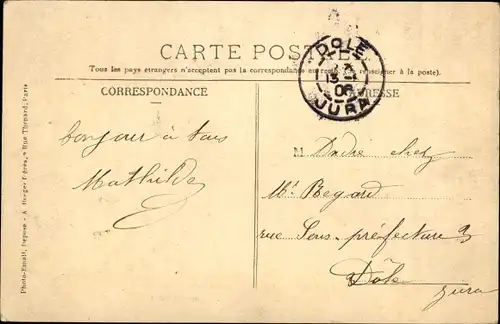 CARTE POST
Tous les pays étrangers n'acceptent pas la correspondance au
renseigner à la poste).
CORRESPONDANCE
ADRESSE
DOLE
13
06
JURA
bonjour à tous
Mathilde
M Dadié chez
Mr Begard
rue Sous-préfecture 3
Dôle
Jura
Photo-Email, Deposé - A. Berger frères, 9 Rue Thénard, Paris